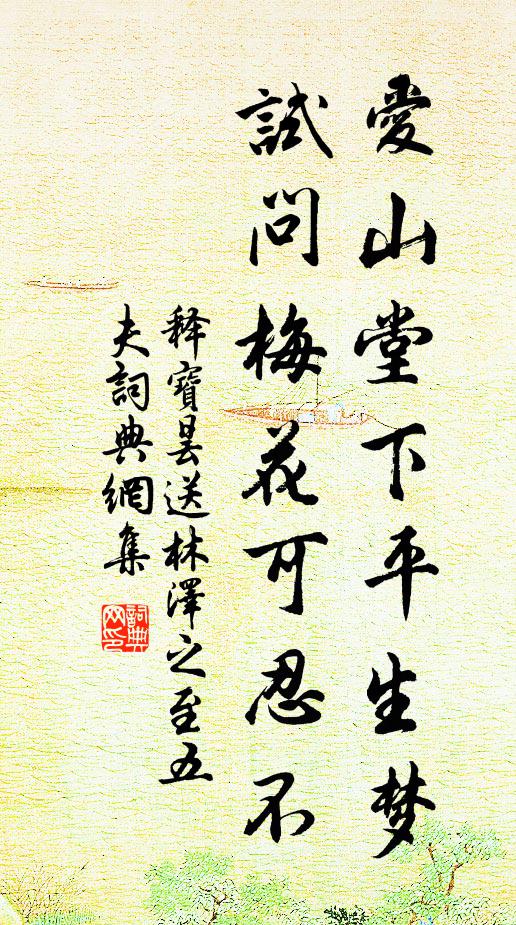 愛山堂下平生梦
試問梅花可忍不
释寶曇送林澤之至五
夫詞典網集
詞典
网印